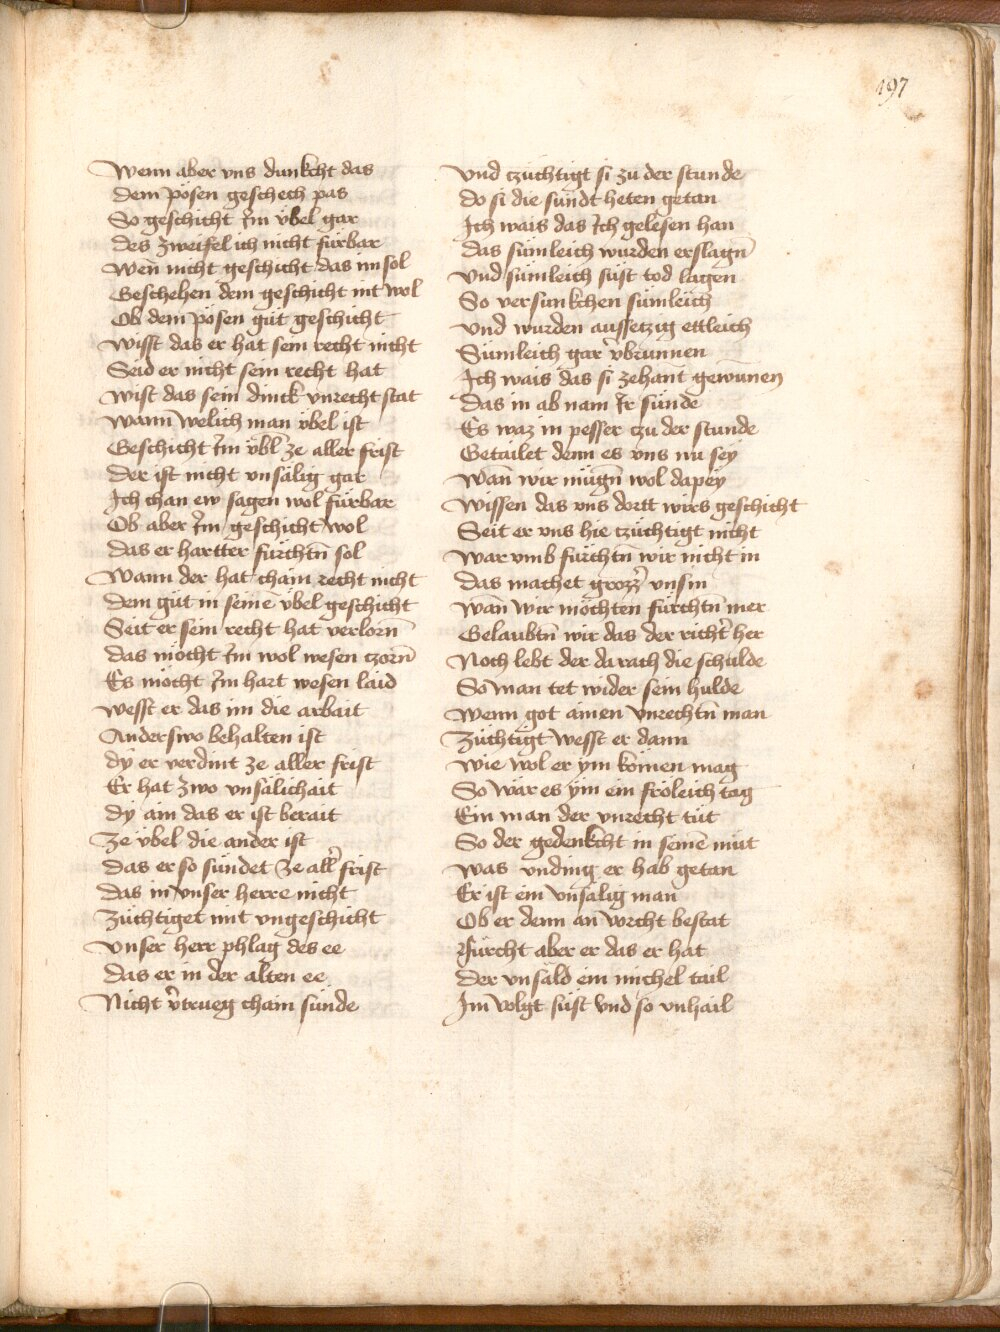 197
Wenn aber vns dunkcht das
dem pösen geschech pas
So geschicht Im vbel gar
des zweifel ich nicht fürbar
Wen̄ nicht geschicht das im sol
Geschehen dem geschicht nit wol
Ob dem pösen güt geschicht
Wisst das er hat sein recht nicht
Seid er nicht sein recht hat
Wist das sein dinck vnrecht stat
Wann̄ welich man vbel ist
Geschicht Im vbl̄ ze aller frist
Der ist nicht vnsälig gar
Ich chan ew sagen wol fürbar
Ob aber Im geschicht wol
das er hartter fürchtn̄ sol
Wann der hat chain recht nicht
dem güt in seinē vbel geschicht
Seit er sein recht hat verlorn̄
das möcht Im wol wesen czorn̄
Es möcht Im hart wesen laid
wesst er das im die arbait
Anderswo behalten ist
dy er verdint ze aller frist
Er hat zwo vnsälichait
dy ain das er ist berait
Ze vbel die ander ist
das er so sündet ze all̄ frist
das in vnser herre nicht
Züchtiget mit vngeschicht
vnser herr phlag des ee
das er in der alten ee
Nicht v̄trueg chain sünde
vnd czüchtigt si zu der stunde
do si die sündt heten getan
Ich wais das Ich gelesen han
das sümleich wurden erslagn̄
vnd sümleich süst tod lagen
So versunkchen sümleich
vnd wurden aussetzig ettleich
Sümleich gar v̄brunnen
Ich wais das si zehant gewunen
Das in ab nam Ir sünde
Es waz in pesser czu der stunde
Getailet denn es vns nu sey
Wan̄ wir mügn̄ wol dapey
Wissen das vns dortt wirs geschicht
Seit er vns hie czüchtigt nicht
War vmb fürchtn̄ wir nicht in
das machet grozz̄ vnsin
Wan̄ wir möchten fürchtn̄ mer
Gelaubtn̄ wir das der richt̄ her
Noch lebt der da rach die schulde
So man tet wider sein hulde
Wenn got ainen vnrechtn̄ man
Züchtigt wesst er dann
Wie wol er ym komen mag
So wär es ym ein fröleich tag
Ein man der vnrecht tüt
So der gedenkcht in seinē müt
was vnding er hab getan
Er ist ein vnsälig man
Ob er denn an vorcht bestat
Fürcht aber er das er hat
der vnsäld ein michel tail
Im volgt süst vnd so vnhail